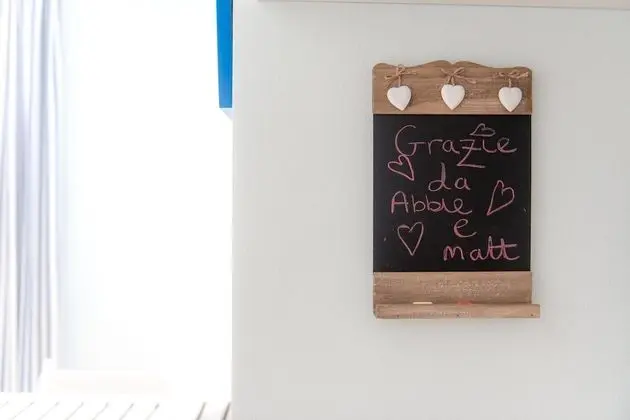 Grazie
da
Abbie
e
matt